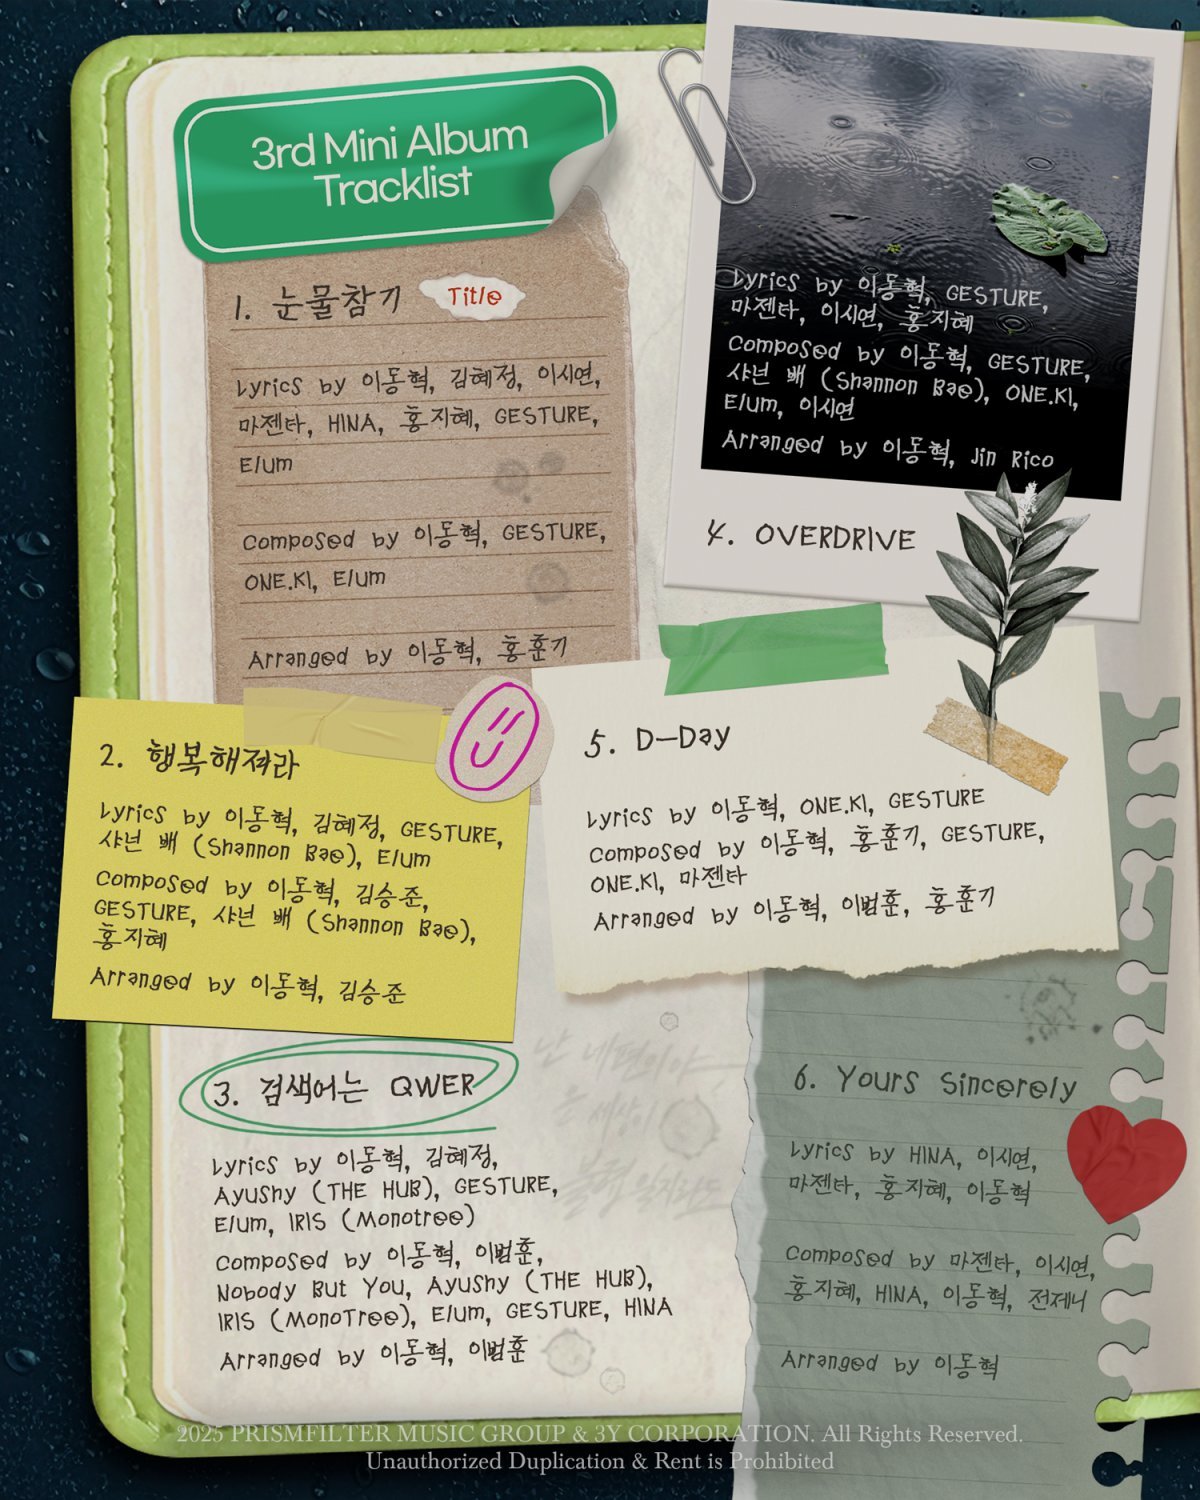 3rd Mini Album
Tracklist
1. 눈물참기 Title
Lyrics by 이동혁, 김혜정, 이시연,
마젠타, HINA, 홍지혜, GESTURE,
Elum
Composed by 이동혁, GESTURE,
ONE.KI, Elum
Arranged by 이동혁, 홍훈기
2. 행복해져라
Lyrics by 이동혁, 김혜정, GESTURE,
샤넌 배 (Shannon Bae), Elum
Composed by 이동혁, 김승준,
GESTURE, 샤넌 배 (Shannon Bae),
홍지혜
Arranged by 이동혁, 김승준
3. 검색어는 QWER
Lyrics by 이동혁, 김혜정,
Ayushy (THE HUB), GESTURE,
Elum, IRIS (Monotree)
Composed by 이동혁, 이범훈,
Nobody But You, Ayushy (THE HUB),
IRIS (MonoTree), Elum, GESTURE, HINA
Arranged by 이동혁, 이범훈
Lyrics by 이동혁, GESTURE,
마젠타, 이시연, 홍지혜
Composed by 이동혁, GESTURE,
샤넌 배 (Shannon Bae), ONE.KI,
Elum, 이시연
Arranged by 이동혁, Jin Rico
4. OVERDRIVE
5. D-Day
Lyrics by 이동혁, ONE.KI, GESTURE
Composed by 이동혁, 홍훈기, GESTURE,
ONE.KI, 마젠타
Arranged by 이동혁, 이범훈, 홍훈기
난 네편이야
세상이
6. Yours Sincerely
Lyrics by HINA, 이시연,
마젠타, 홍지혜, 이동혁
Composed by 마젠타, 이시연,
홍지혜, HINA, 이동혁, 전제니
Arranged by 이동혁
2025 PRISMFILTER MUSIC GROUP & 3Y CORPORATION. All Rights Reserved.
Unauthorized Duplication & Rent is Prohibited